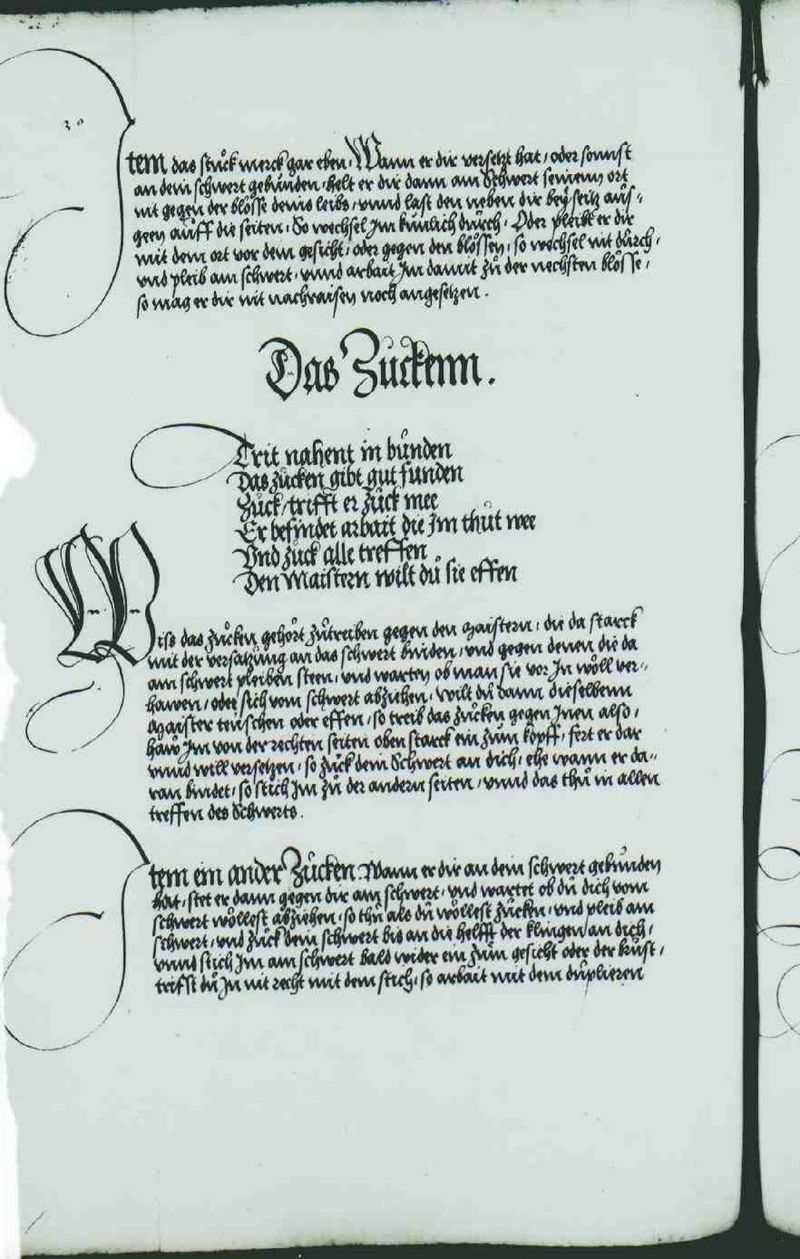 Item das stuck merck gar eben, Wann er dir versetzt hat, oder sonnst
an dein schwert gebunden, helt er dir dann am Schwert seinenn ort
nit gegen der blösse deins leibs, unnd last den neben dir beyseitz aus-
geen auff die seiten, So wechsel Im künlich durch, Oder pleibt er dir
mit dem ort vor dem gesicht, oder gegen den blössen, so wechsel nit durch,
und pleib am schwert, unnd arbait Im damit zu der nechsten blösse,
so mag er dir nit nachraisen noch angesetzen.
Das Zuckenn.
Trit nahent in bunden
Das zucken gibt gut funden
Zuck, trifft er zuck mee
Er befindet arbait die Im thut wee
Und zuck alle treffen
Den Maistern wilt du sie effen
Wiss das zucken gehort zutreiben gegen den Maistern, die da starck
mit der versatzung an das schwert binden, und gegen denen die da
am schwert pleiben steen, und warten ob man sie vor In wöll ver-
hawen, oder sich vom schwert abziehen, wilt du dann dieselbenn
Maister teuschen oder effen, so treib das zucken gegen Inen also,
haw Im von der rechten seiten oben starck ein zum kopff, fert er dar
unnd will versetzen, so zuck dein Schwert an dich, ehe wann er da-
ran bindet, so stich Im zu der andern seiten, unnd das thu in allen
treffen des Schwerts.
Item ein ander Zucken. Wann er dir an dein schwert gebunden
hat, stet er dann gegen dir am schwert, und wartet ob du dich vom
schwert wöllest abziehen, so thu als du wöllest zucken, und pleib am
schwert, und zuck dein schwert bis an die helfft der klingen an dich,
unnd stich Im am schwert bald wider ein zum gesicht oder der brust,
triffst du In nit recht mit dem stich, so arbait mit dem duplieren